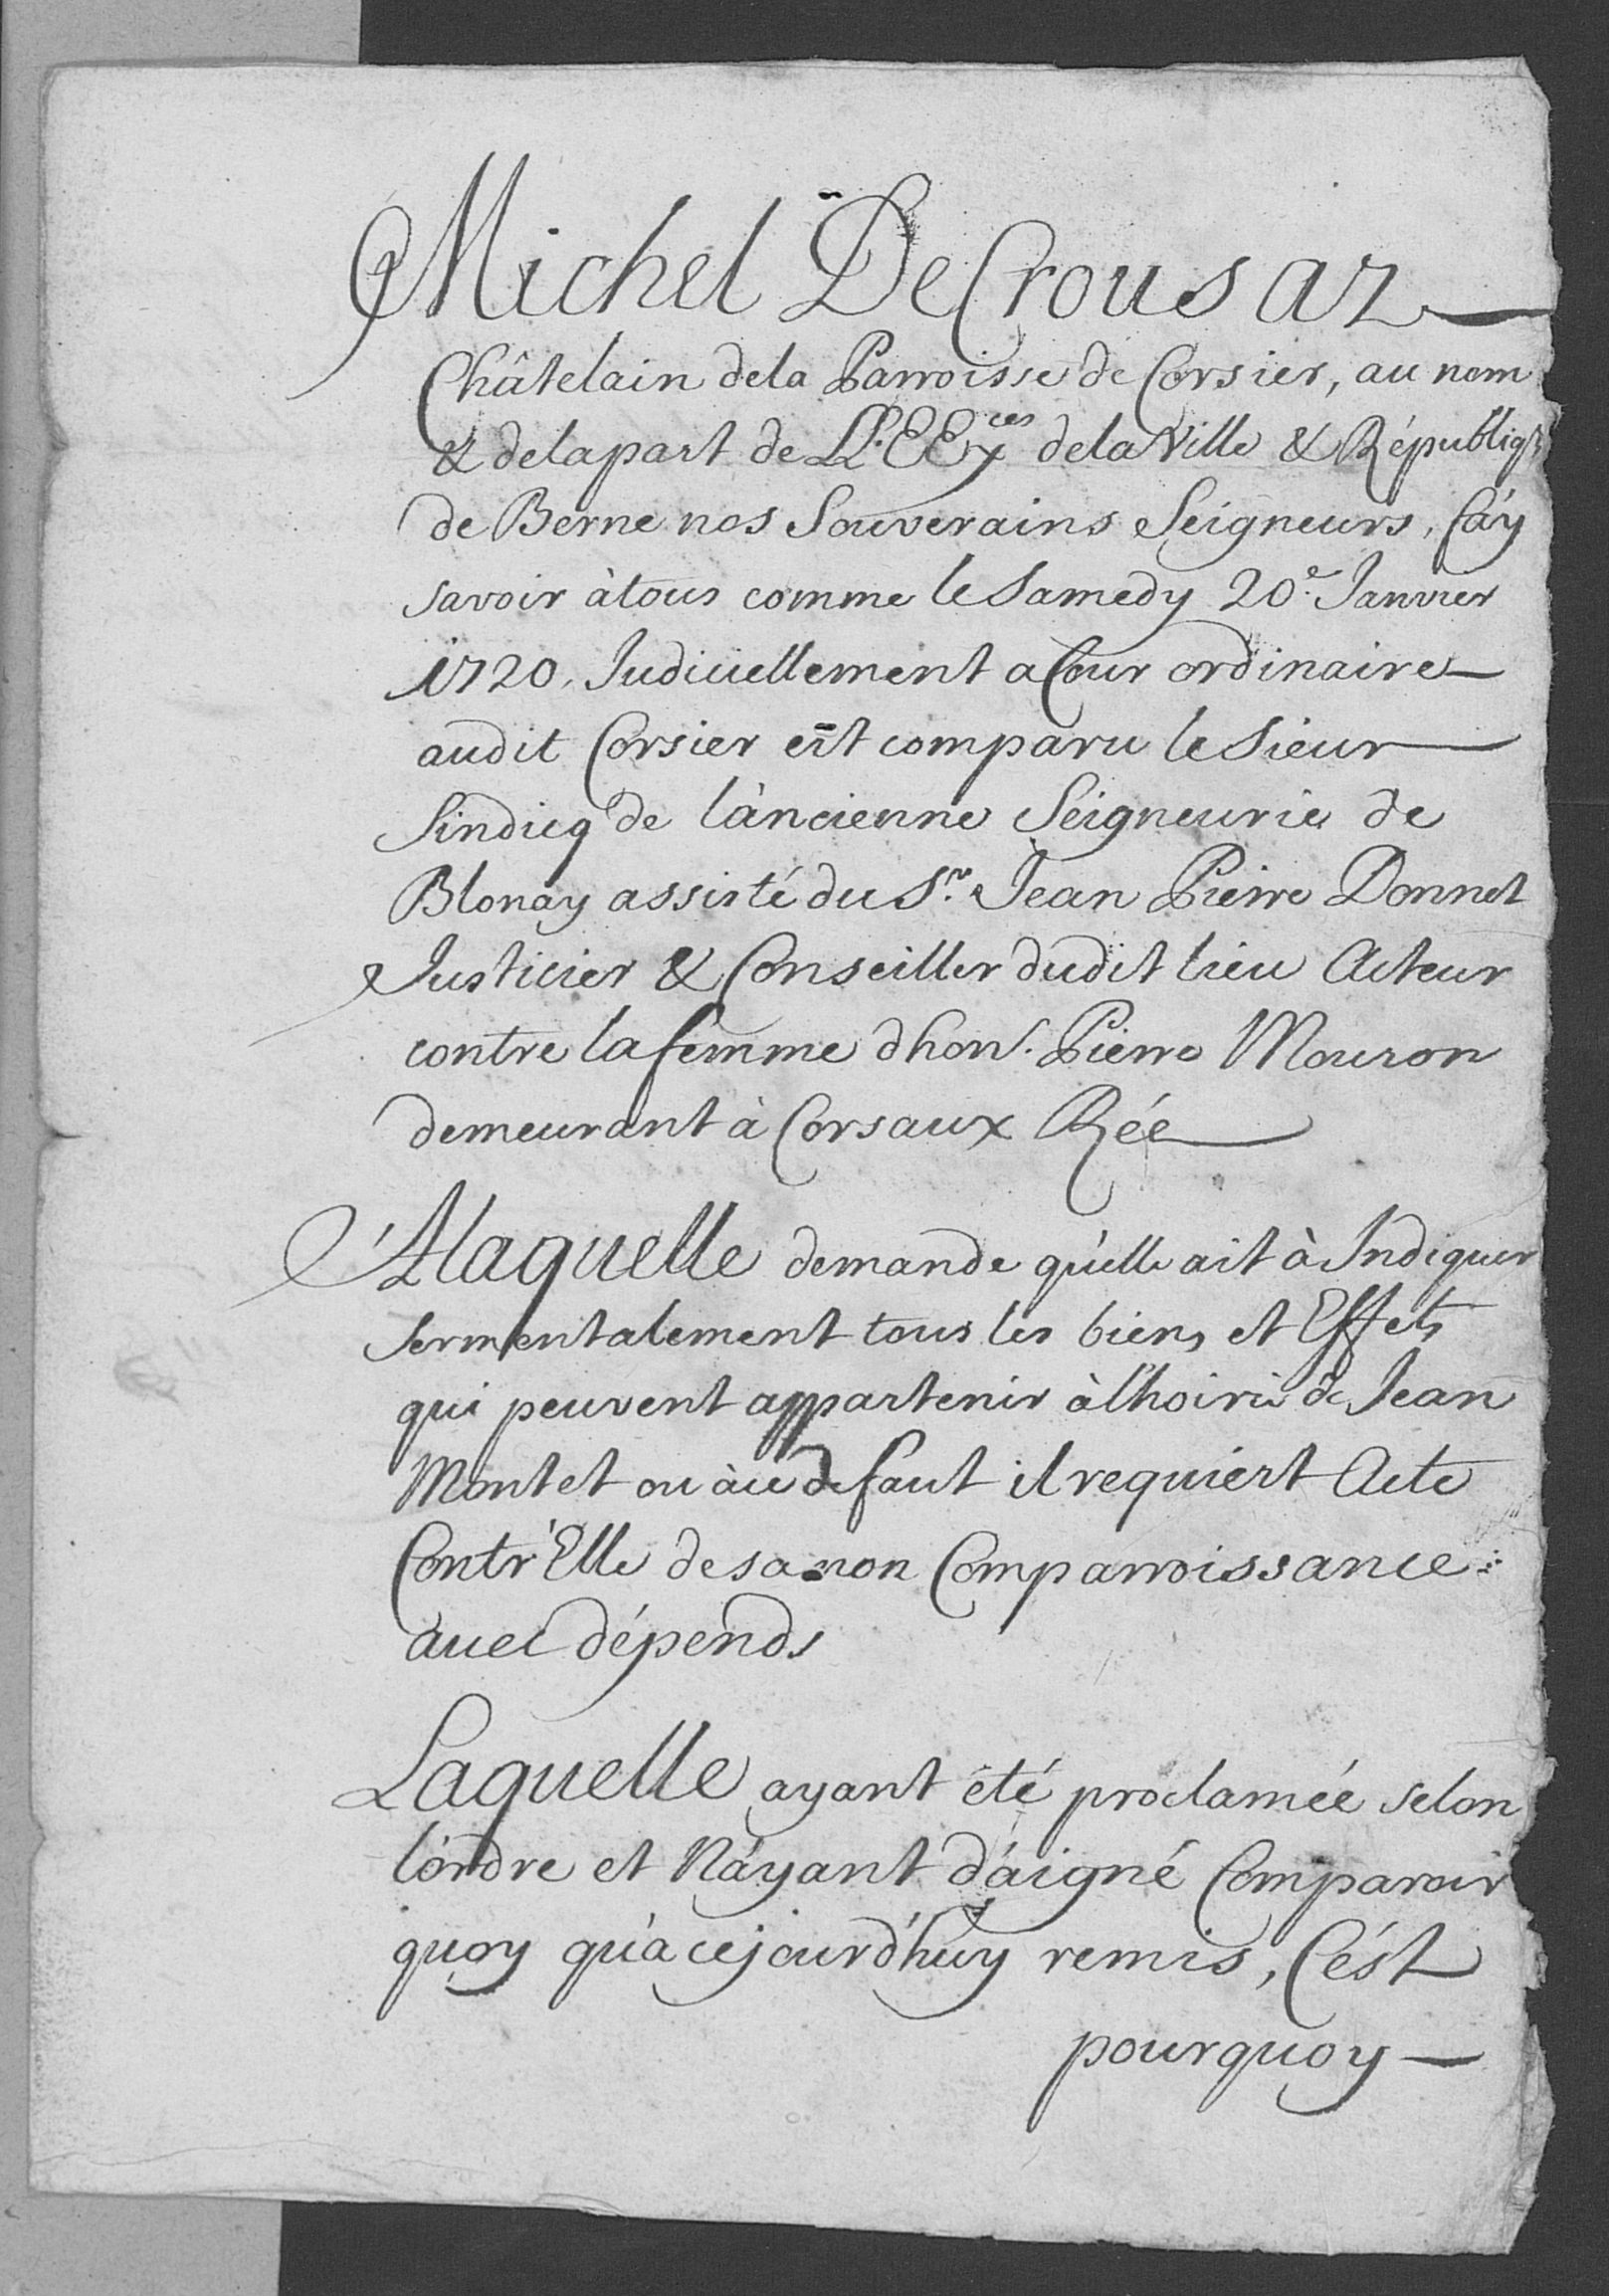 Michel De Crousaz
Châtelain dela Parroisse de Corsier, au nom
& delapart de LL.EExces dela Ville & Républiq.
de Berne nos Souverains Seigneurs, fáy
savoir àtous comme le Samedy 20e. Janvier
1720, Judiciellement a Cour ordinaire
audit Corsier est comparu le Sieur
Sindicq de láncienne Seigneurie de
Blonay assisté du Sr. Jean Pierre Donnet
Justicier & Conseiller dudit lieu Acteur
contre la femme d'hon. Pierre Mouron
demeurant à Corsaux Rée
A laquelle demande qu'elle ait à Indiquer
sermentalement tous les biens et Effets
qui peuvent appartenir à lhoirie de Jean
Montet ou àce defaut il requiert Acte
Contr'Elle de sa non Comparroissance
avec dépends
Laquelle ayant été proclamée selon
l'ordre et N'ayant d'aigné Comparoir
quoy qu'a cejourd'huy remis, C'est
pourquoy